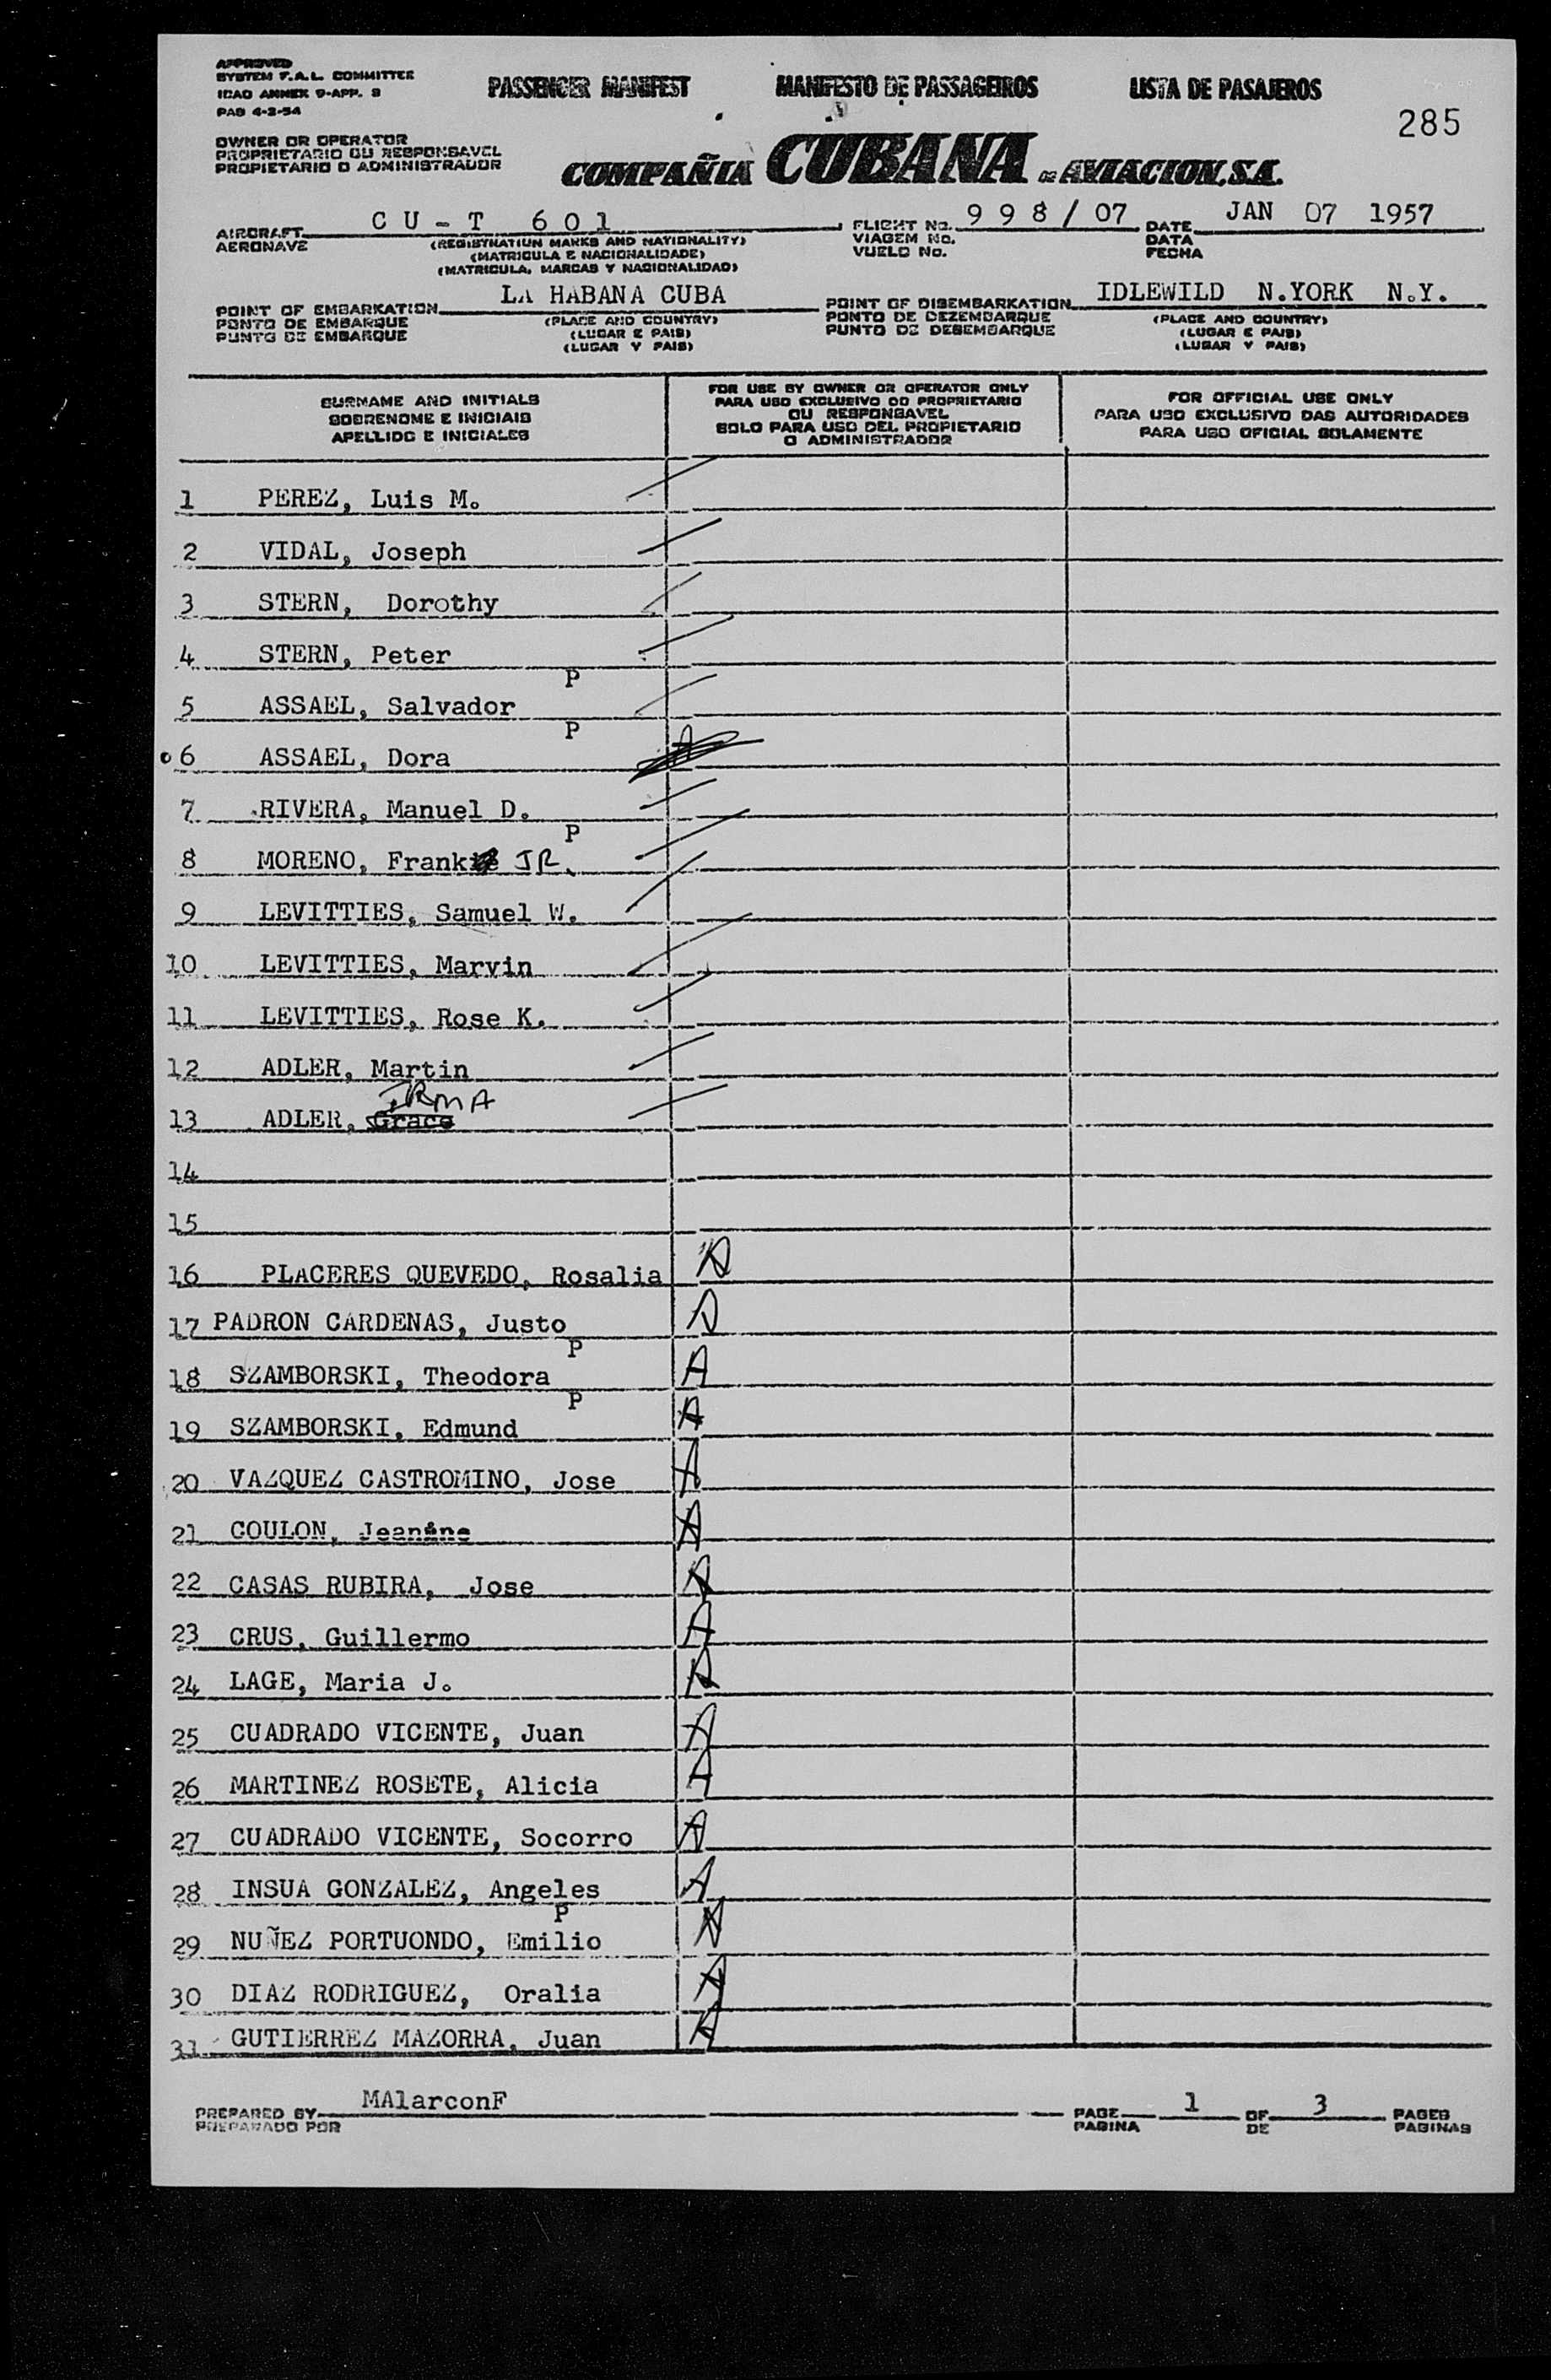 APPROVED
SYSTEM F.A.L. COMMITTEE
ICAO ANNEX 9-APP. 3
PAB 4-2-54
PASSENGER MANIFEST MANIFESTO DE PASSAGEIROS LISTA DE PASAJEROS
285
OWNER OR OPERATOR
PROPRIETARIO OU RESPONSAVEL
PROPIETARIO O ADMINISTRADOR
COMPAÑIA CUBANA DE AVIACION, S.A.
AIRCRAFT CU-T 601 FLIGHT No. 998/07 DATE JAN 07 1957
AERONAVE (REGISTRATION MARKS AND NATIONALITY) VIAGEM No. DATA
(MATRICULA E NACIONALIDADE) VUELO No. FECHA
(MATRICULA, MARCAS Y NACIONALIDAD)
POINT OF EMBARKATION LA HABANA CUBA POINT OF DISEMBARKATION IDLEWILD N.YORK N.Y.
PONTO DE EMBARQUE (PLACE AND COUNTRY) PONTO DE DEZEMBARQUE (PLACE AND COUNTRY)
PUNTO DE EMBARQUE (LUGAR E PAIS) PUNTO DE DESEMBARQUE (LUGAR E PAIS)
(LUGAR Y PAIS) (LUGAR Y PAIS)
SURNAME AND INITIALS
SOBRENOME E INICIAIS
APELLIDO E INICIALES
FOR USE BY OWNER OR OPERATOR ONLY
PARA USO EXCLUSIVO DO PROPRIETARIO
OU RESPONSAVEL
SOLO PARA USO DEL PROPIETARIO
O ADMINISTRADOR
FOR OFFICIAL USE ONLY
PARA USO EXCLUSIVO DAS AUTORIDADES
PARA USO OFICIAL SOLAMENTE
1 PEREZ, Luis M.
2 VIDAL, Joseph
3 STERN, Dorothy
4 STERN, Peter
P
5 ASSAEL, Salvador
P
6 ASSAEL, Dora A
7 RIVERA, Manuel D.
P
8 MORENO, Frank JR.
9 LEVITTIES, Samuel W.
10 LEVITTIES, Marvin
11 LEVITTIES, Rose K.
12 ADLER, Martin
IRMA
13 ADLER, Grace
14
15
16 PLACERES QUEVEDO, Rosalia A
17 PADRON CARDENAS, Justo A
P
18 SZAMBORSKI, Theodora A
P
19 SZAMBORSKI, Edmund A
20 VAZQUEZ CASTROMINO, Jose A
21 COULON, Jeanine A
22 CASAS RUBIRA, Jose A
23 CRUS, Guillermo A
24 LAGE, Maria J. A
25 CUADRADO VICENTE, Juan A
26 MARTINEZ ROSETE, Alicia A
27 CUADRADO VICENTE, Socorro A
28 INSUA GONZALEZ, Angeles A
P
29 NUÑEZ PORTUONDO, Emilio A
30 DIAZ RODRIGUEZ, Oralia A
31 GUTIERREZ MAZORRA, Juan A
PREPARED BY MAlarconF PAGE 1 OF 3 PAGES
PREPARADO POR PAGINA DE PAGINAS